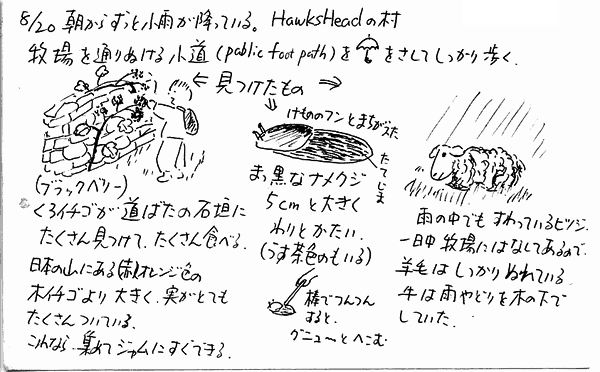 8/20 朝からずっと小雨が降っている。HawksHeadの村
牧場を通りぬける小道(public foot path)を をさしてしっかり歩く.
← 見つけたもの →
(ブラックベリー)
くろイチゴが道ばたの石垣に
たくさん見つけて、たくさん食べる.
日本の山にある赤オレンジ色の
木イチゴより大きく、実がとても
たくさんついている.
これなら、集めてジャムにすぐできる.
けもののフンとまちがえた
たてじま
まっ黒なナメクジ
5cmと大きく
わりとかたい.
(うす茶色のもいる)
棒でつんつん
すると、
グニューとへこむ
雨の中でもすわっているヒツジ.
一日中牧場にはなしてあるので、
羊毛はしっかりぬれている.
牛は雨やどりを木の下で
していた.